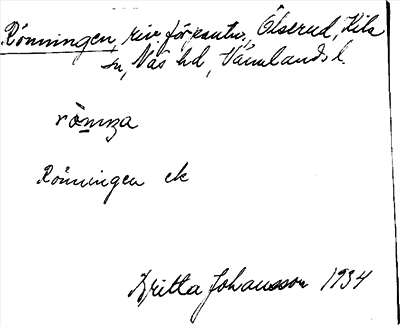 Rönningen, riv. förpantn., Ölserud, Kila
sn, Näs hd, Värmlands l.
ròmza
Rönningen ek
Britta Johansson 1934